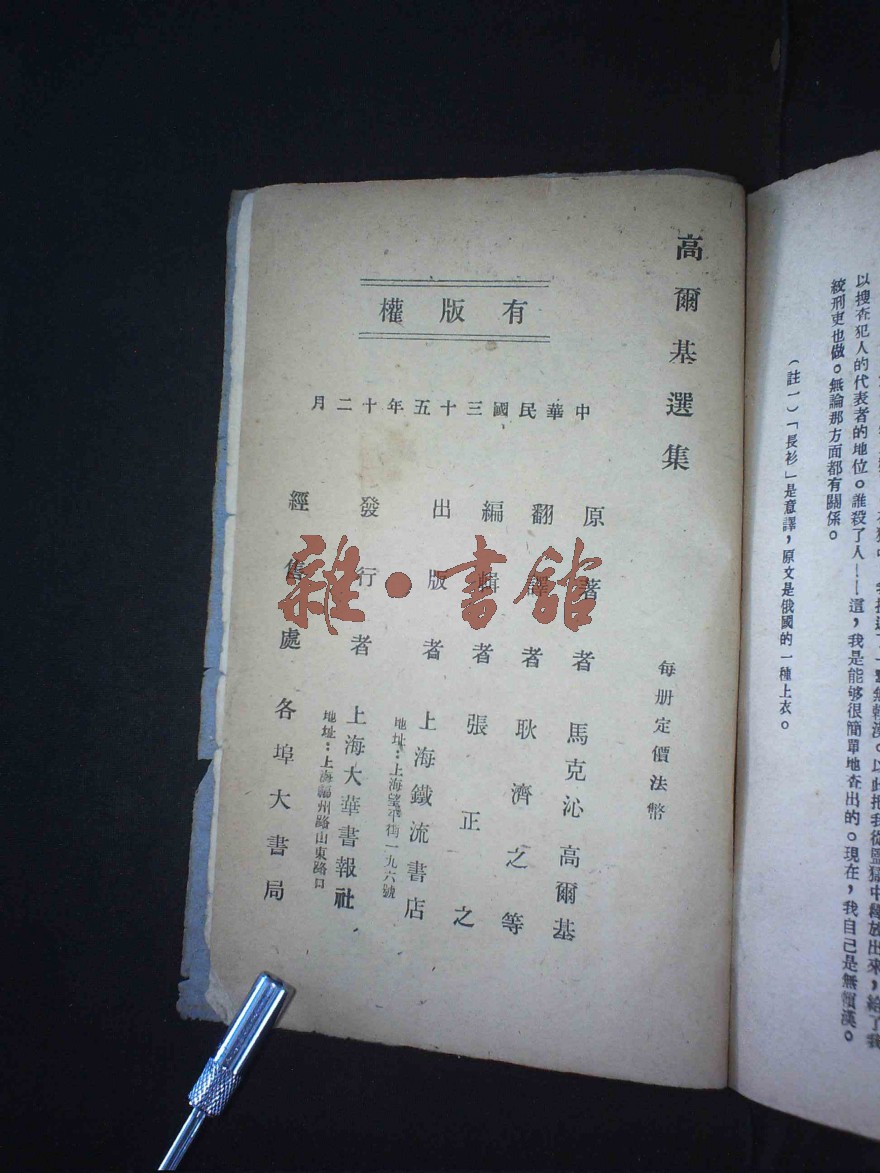 以搜查犯人的代表者的地位。誰殺了人——這，我是能够很簡單地查出的。現在，我自己是無賴漢。
絞刑吏也做。無論那方面都有關係。
（註一）「長衫」是意譯，原文是俄國的一種上衣。
高爾基選集
每册定價法幣
有版權
中華民國三十五年十二月
原著者 馬克沁高爾基
翻譯者 耿濟之等
編輯者 張正之
出版者 上海鐵流書店
地址：上海望平街一九六號
發行者 上海大華書報社
地址：上海福州路山東路口
經售處 各埠大書局
雜·書館